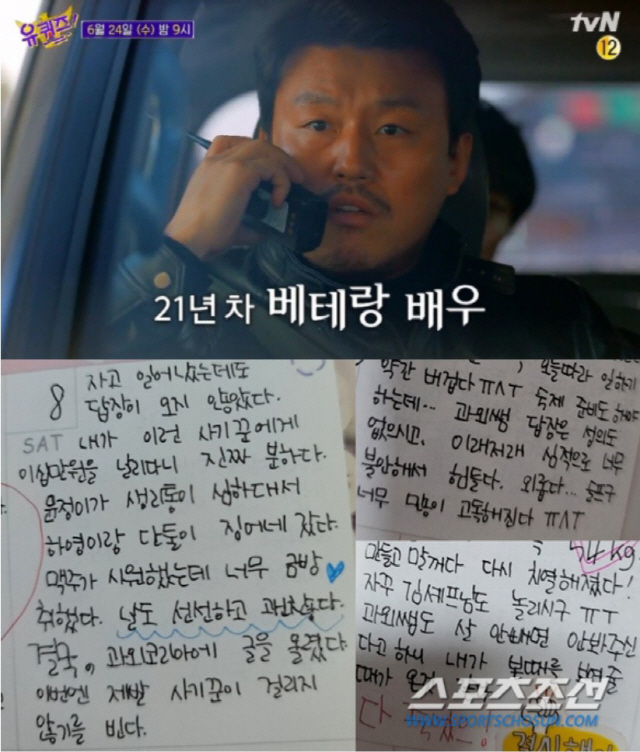 유퀴즈!
6월 24일 (수) 밤 9시
tvN
12
21년 차 베테랑 배우
자고 일어났는데도
8 답장이 오지 않았다.
SAT 내가 이런 사기꾼에게
이십만원을 날리다니 진짜 분하다.
윤정이가 생리통이 심하대서
하영이랑 단둘이 징어네 갔다.
맥주가 시원했는데 너무 금방
취했다. 날도 선선하고 괜찮았다.
결국, 과외코리아에 글을 올렸다
이번엔 제발 사기꾼이 걸리지
않기를 빈다.
약간 버겁다 ㅠㅅㅜ 숙제 준비도 해야
하는데... 과외쌤 답장은 성의도
없으시고, 이래저래 심적으로 너무
불안해서 힘들다. 외롭다...
너무 많이 고독해진다 ㅠㅅㅜ
kg
만들고 말꺼다 다시 치열해졌다!
자꾸 김셰프님도 놀리시구 ㅠㅜ
과외쌤도 살 안빼면 안봐주신
다고 하니 내가 본때를 보여줄
때가
스포츠조선
WWW.SPORTSCHOSUN.COM